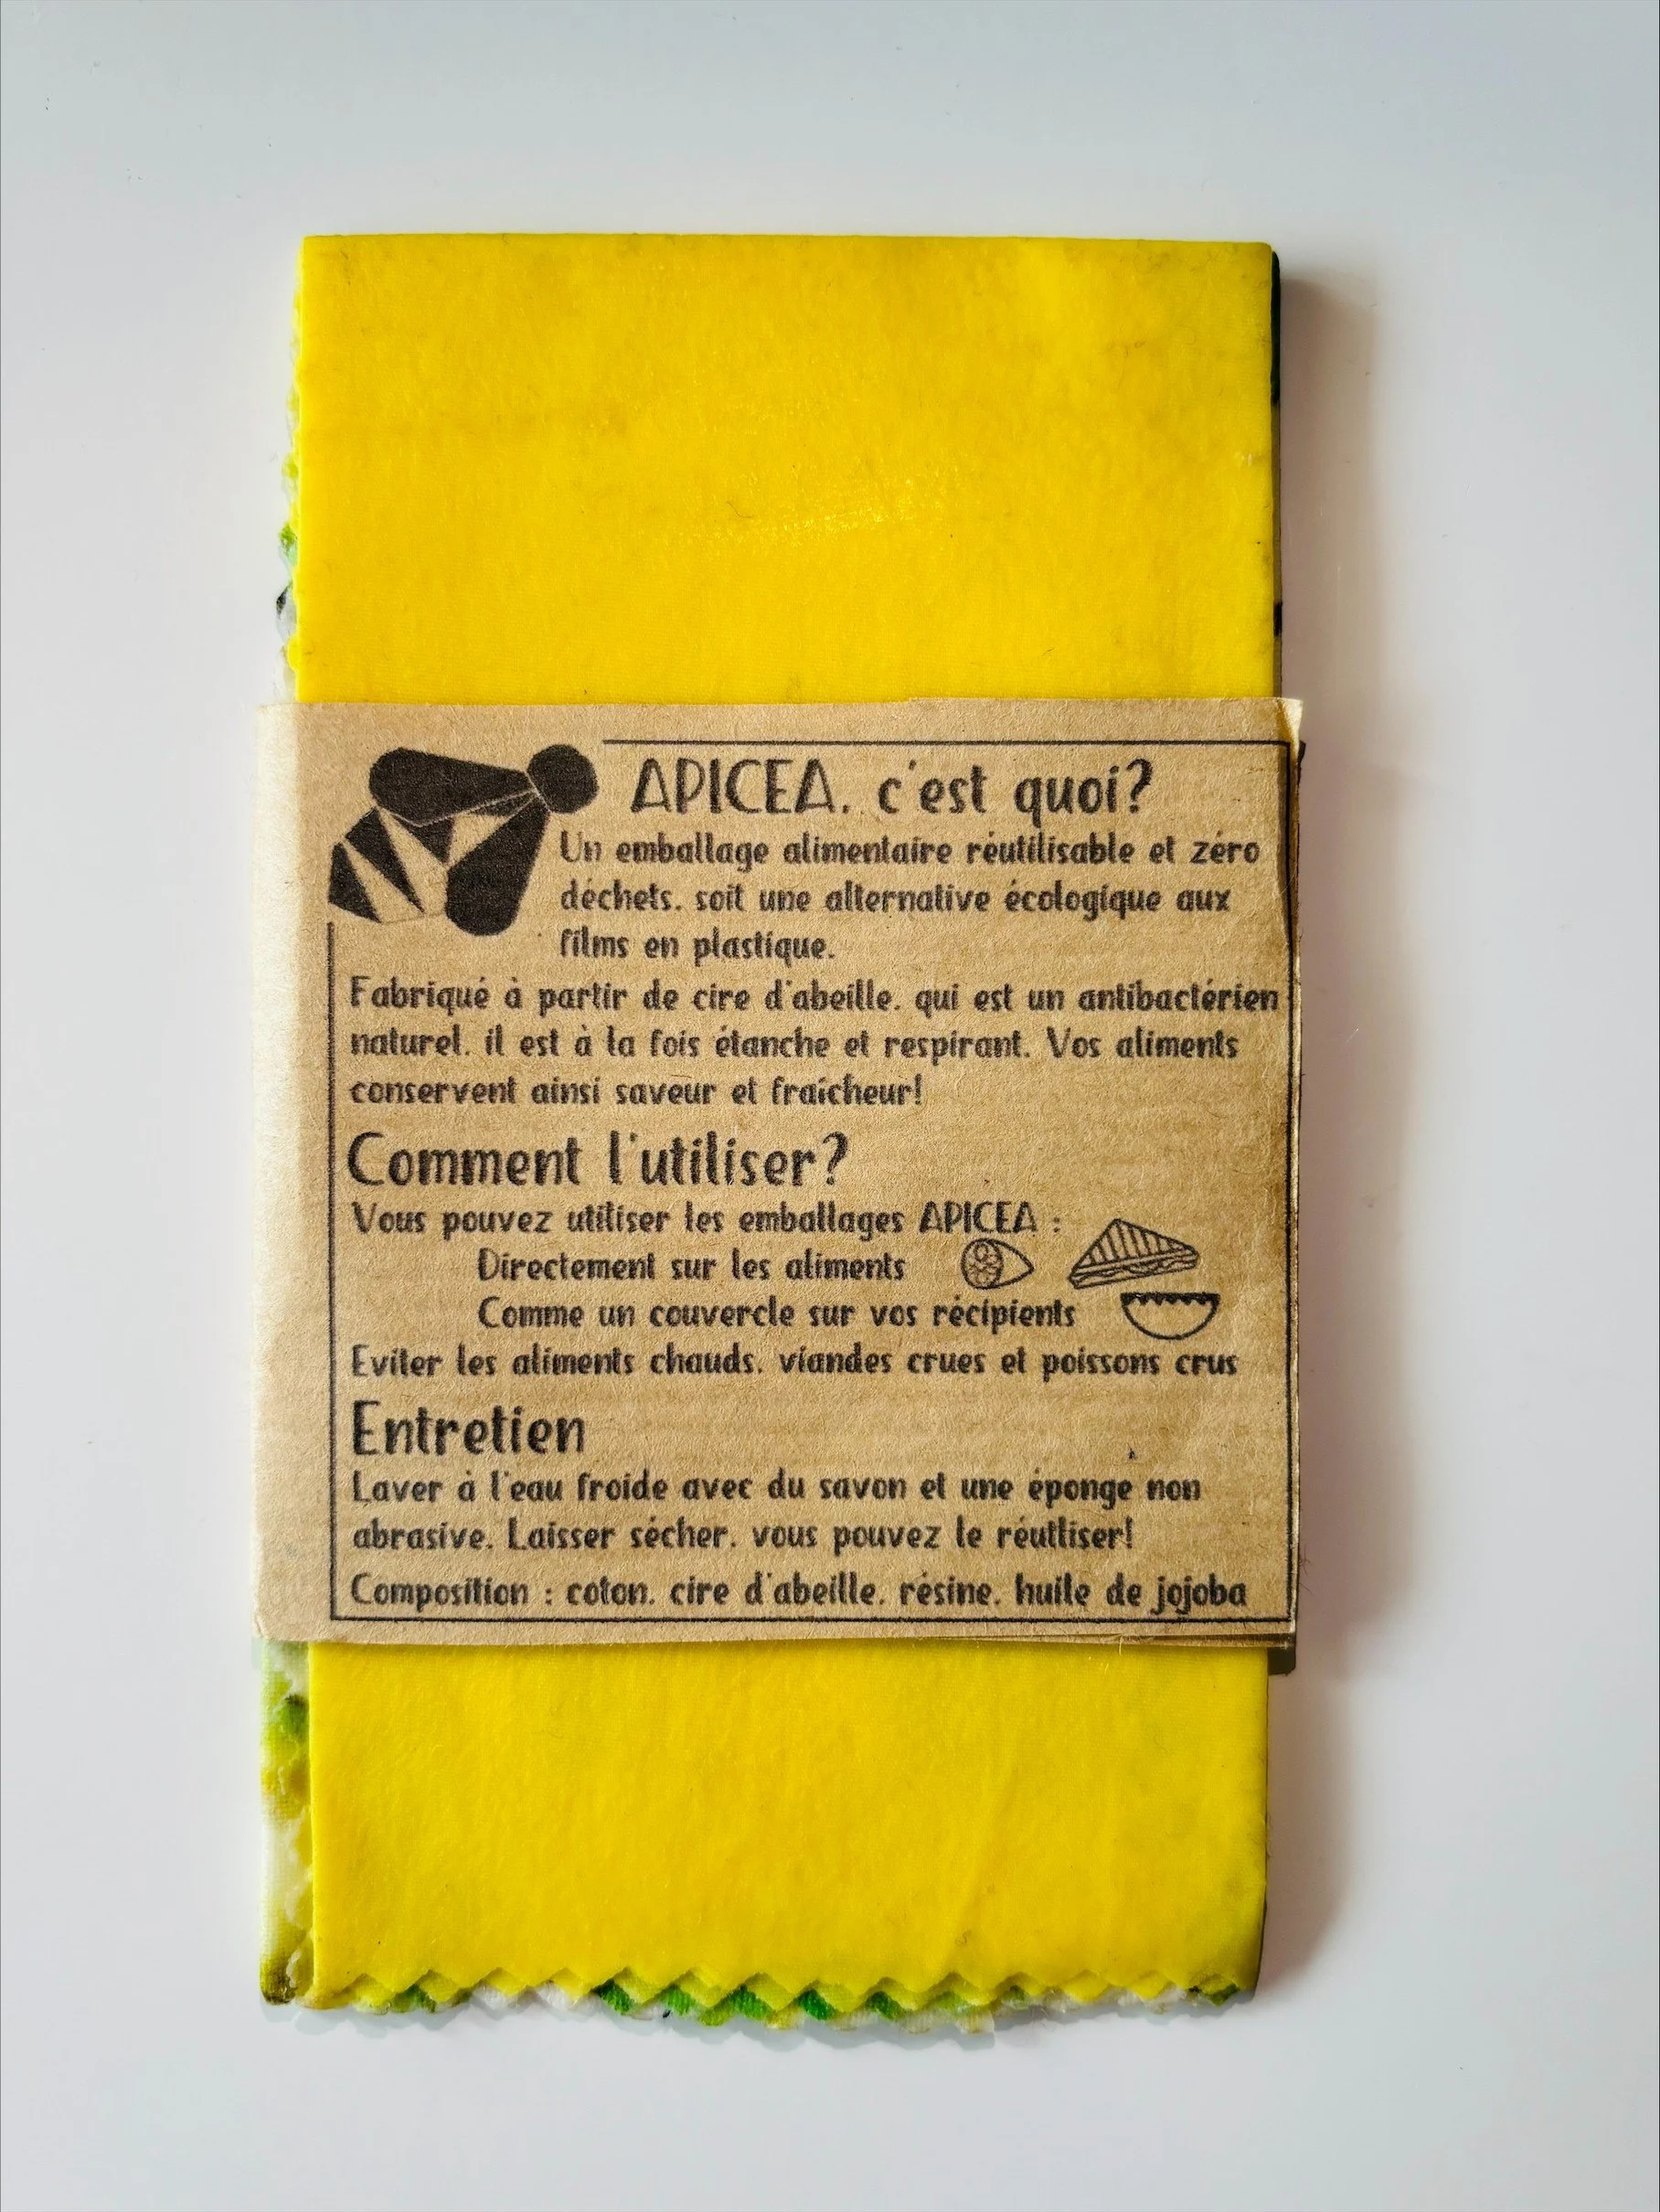 APICEA, c'est quoi?
Un emballage alimentaire réutilisable et zéro
déchets, soit une alternative écologique aux
films en plastique.
Fabriqué à partir de cire d'abeille, qui est un antibactérien
naturel, il est à la fois étanche et respirant. Vos aliments
conservent ainsi saveur et fraîcheur!
Comment l'utiliser?
Vous pouvez utiliser les emballages APICEA :
Directement sur les aliments
Comme un couvercle sur vos récipients
Eviter les aliments chauds, viandes crues et poissons crus
Entretien
Laver à l'eau froide avec du savon et une éponge non
abrasive. Laisser sécher, vous pouvez le réutliser!
Composition : coton, cire d'abeille, résine, huile de jojoba